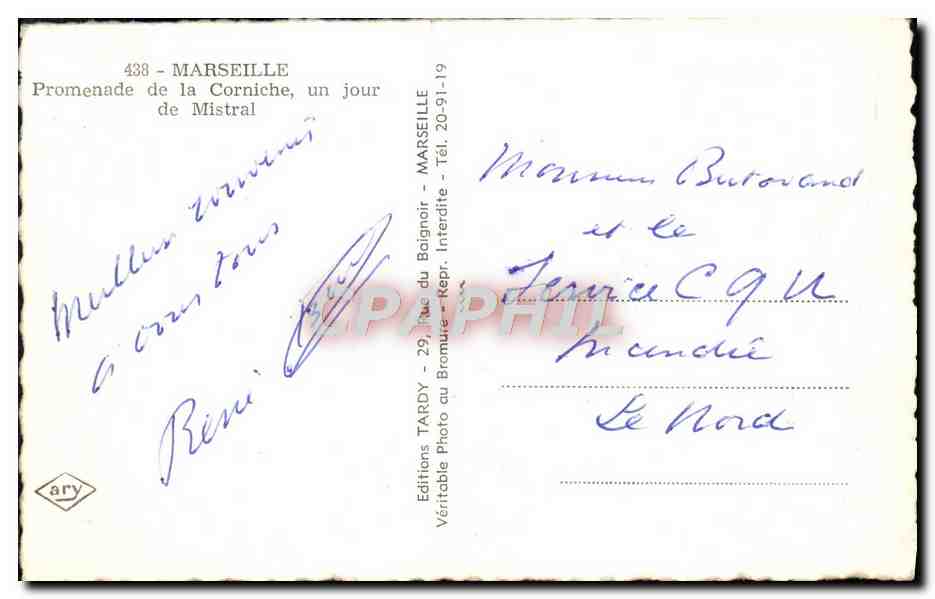 438 - MARSEILLE
Promenade de la Corniche, un jour
de Mistral
Meilleurs souvenirs
à vous tous
René
ary
Editions TARDY - 29, Rue du Baignoir - MARSEILLE
Véritable Photo au Bromure - Repr. Interdite - Tél. 20-91-19
CPAPHIL
Monsieur
et le
Service C G U
Incendie
Le Nord